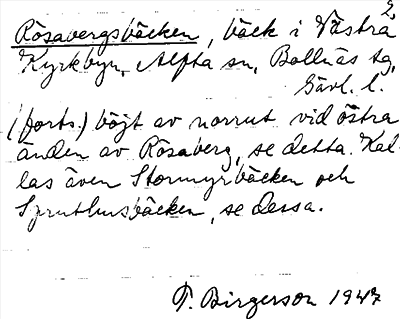 2.
Rösavergsbäcken, bäck i Västra
Kyrkbyn, Alfta sn, Bollnäs tg,
Gävl. l.
(forts.) böjt av norrut vid östra
änden av Rösaberg, se detta. Kal-
las även Stormyrbäcken och
Spruthusbäcken, se dessa.
T. Birgerson 1947